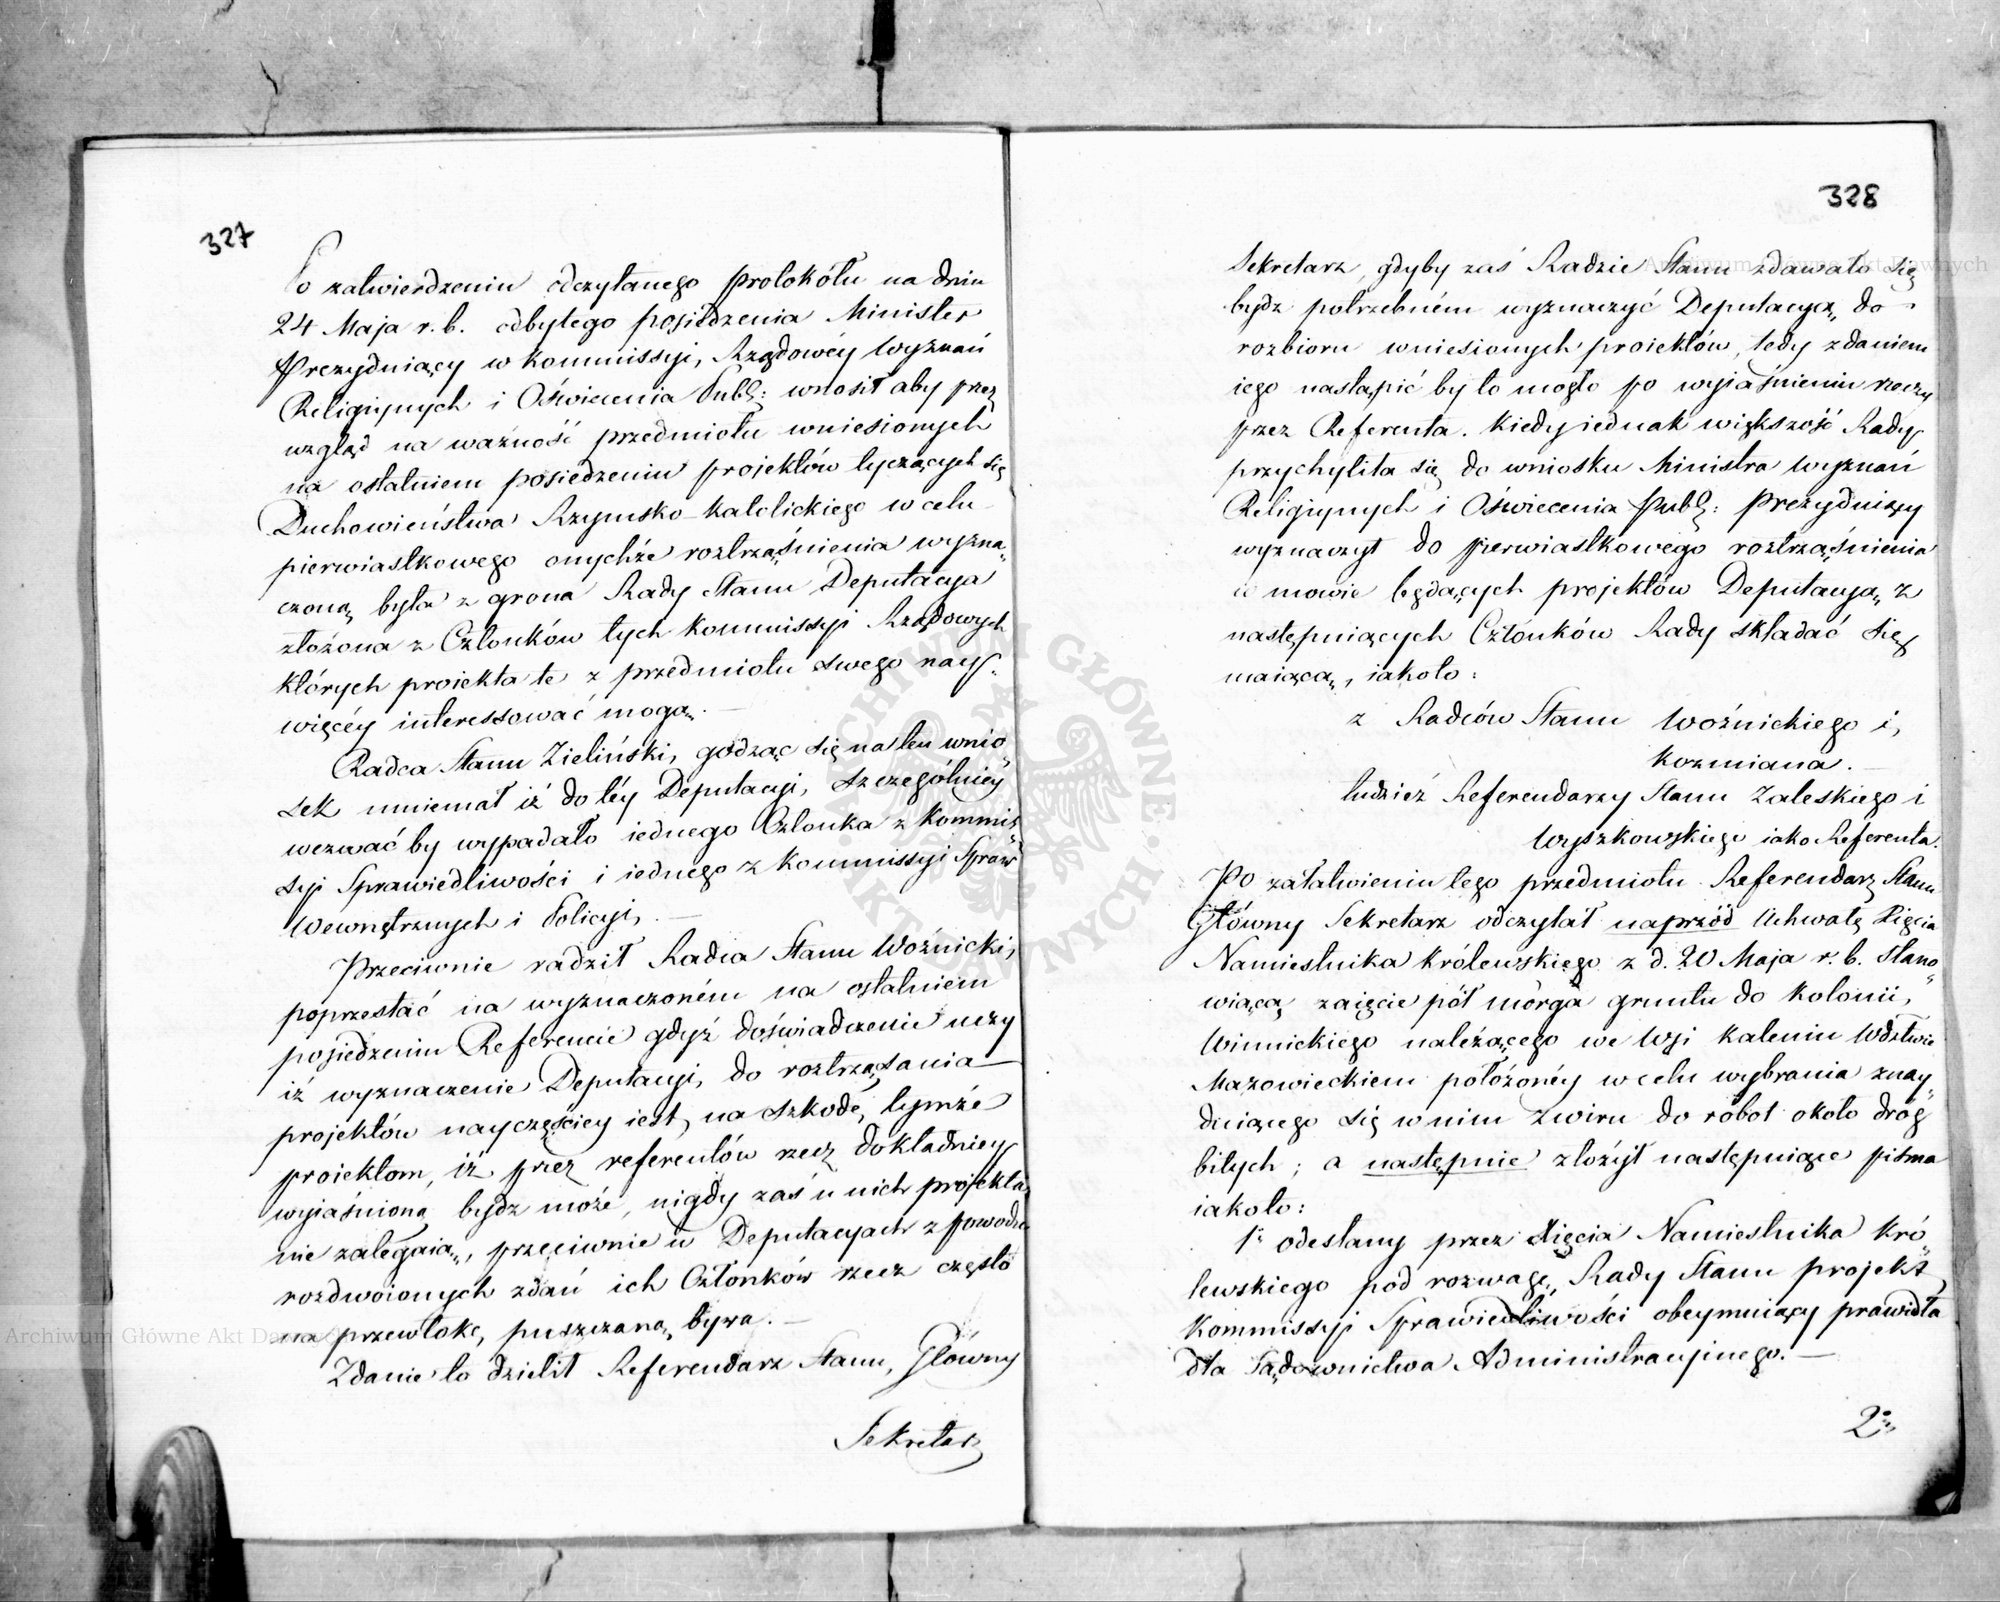 327
Po zatwierdzeniu odczytanego protokółu na dniu
24 Maja r. b. odbytego posiedzenia Minister
Prezyduiący w Kommissyi, Rządowéy Wyznań
Religiynych i Oświecenia Publ: wnosił aby przez
wzgląd na ważność przedmiotu wniesionych
na ostatniem posiedzeniu projektów tyczących się
Duchowieństwa Rzymsko-Katolickiego w celu
pierwiastkowego onychże roztrząśnienia wyzna„
czoną była z grona Rady Stanu Deputacya
złożona z Członków tych Kommissyi Rządowych
których proiekta te z przedmiotu swego nay„
więcéy interessować mogą. —
Radca Stanu Zieliński, godząc się na ten wnio„
sek mniemał iż do téy Deputacyi, szczególniey
wezwać by wypadało iednego Członka z Kommis„
syi Sprawiedliwości i iednego z Kommissyi Spraw
Wewnętrznych i Policyi. —
Przeciwnie radził Radca Stanu Woźnicki,
poprzestać na wyznaczoném na ostatniem
posiedzeniu Referencie gdyż doświadczenie uczy
iż wyznaczenie Deputacyi, do roztrząsania
projektów nayczęściey iest, na szkodę, tymże
proiektom, iż przez referentów rzecz dokładniey
wyiaśnioną bydz może, nigdy zaś u nich projekta
nie zalegaią, przeciwnie u Deputacyach z powodu
rozdwoionych zdań ich Członków rzecz często
na przewłokę, puszczaną bywa. —
Zdanie to dzielił Referendarz Stanu, Główny
Sekretarz
328
Sekretarz, gdyby zaś Radzie Stanu zdawało się
bydz potrzebném wyznaczyć Deputacyą, do
rozbioru wniesionych proiektów, tedy zdaniem
iego nastąpić by to mogło po wyiaśnieniu rzeczy
przez Referenta. Kiedy iednak większość Rady
przychyliła się do wniosku Ministra Wyznań
Religiynych i Oświecenia Publ: Prezyduiący
wyznaczył do pierwiastkowego roztrząśnienia
w mowie będących projektów Deputacyą, z
następuiących Członków Rady składać się
maiącą, iakoto:
z Radców Stanu Woźnickiego i,
Kozmiana. —
tudzież Referendarzy Stanu Zaleskiego i
Wyszkowskiego iako Referenta.
Po załatwieniu tego przedmiotu Referendarz Stanu
Główny Sekretarz odczytał naprzód Uchwałę Xięcia
Namiestnika Królewskiego z d. 20 Maja r. b. stano„
wiącą zaięcie pół morga gruntu do Kolonii,
Winnickiego należącego we Wsi Kaleniu Wdztwie
Mazowieckiem położonéy w celu wybrania znay„
duiącego się w nim zwiru do robot około dróg
bitych; a następnie złożył następuiące pisma
iakoto:
1° odesłany przez Xięcia Namiestnika Kró„
lewskiego pod rozwagę, Rady Stanu projekt
Kommissyi Sprawiedliwości obeymuiący prawidła
dla Sądownictwa Administracyinego. —
2°
Archiwum Główne Akt Dawnych